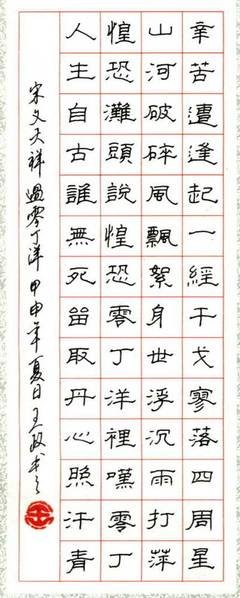 辛苦遭逢起一經干戈寥落四周星
山河破碎風飄絮身世浮沉雨打萍
惶恐灘頭說惶恐零丁洋裡嘆零丁
人生自古誰無死留取丹心照汗青
宋文天祥過零丁洋 甲申年夏日王政书